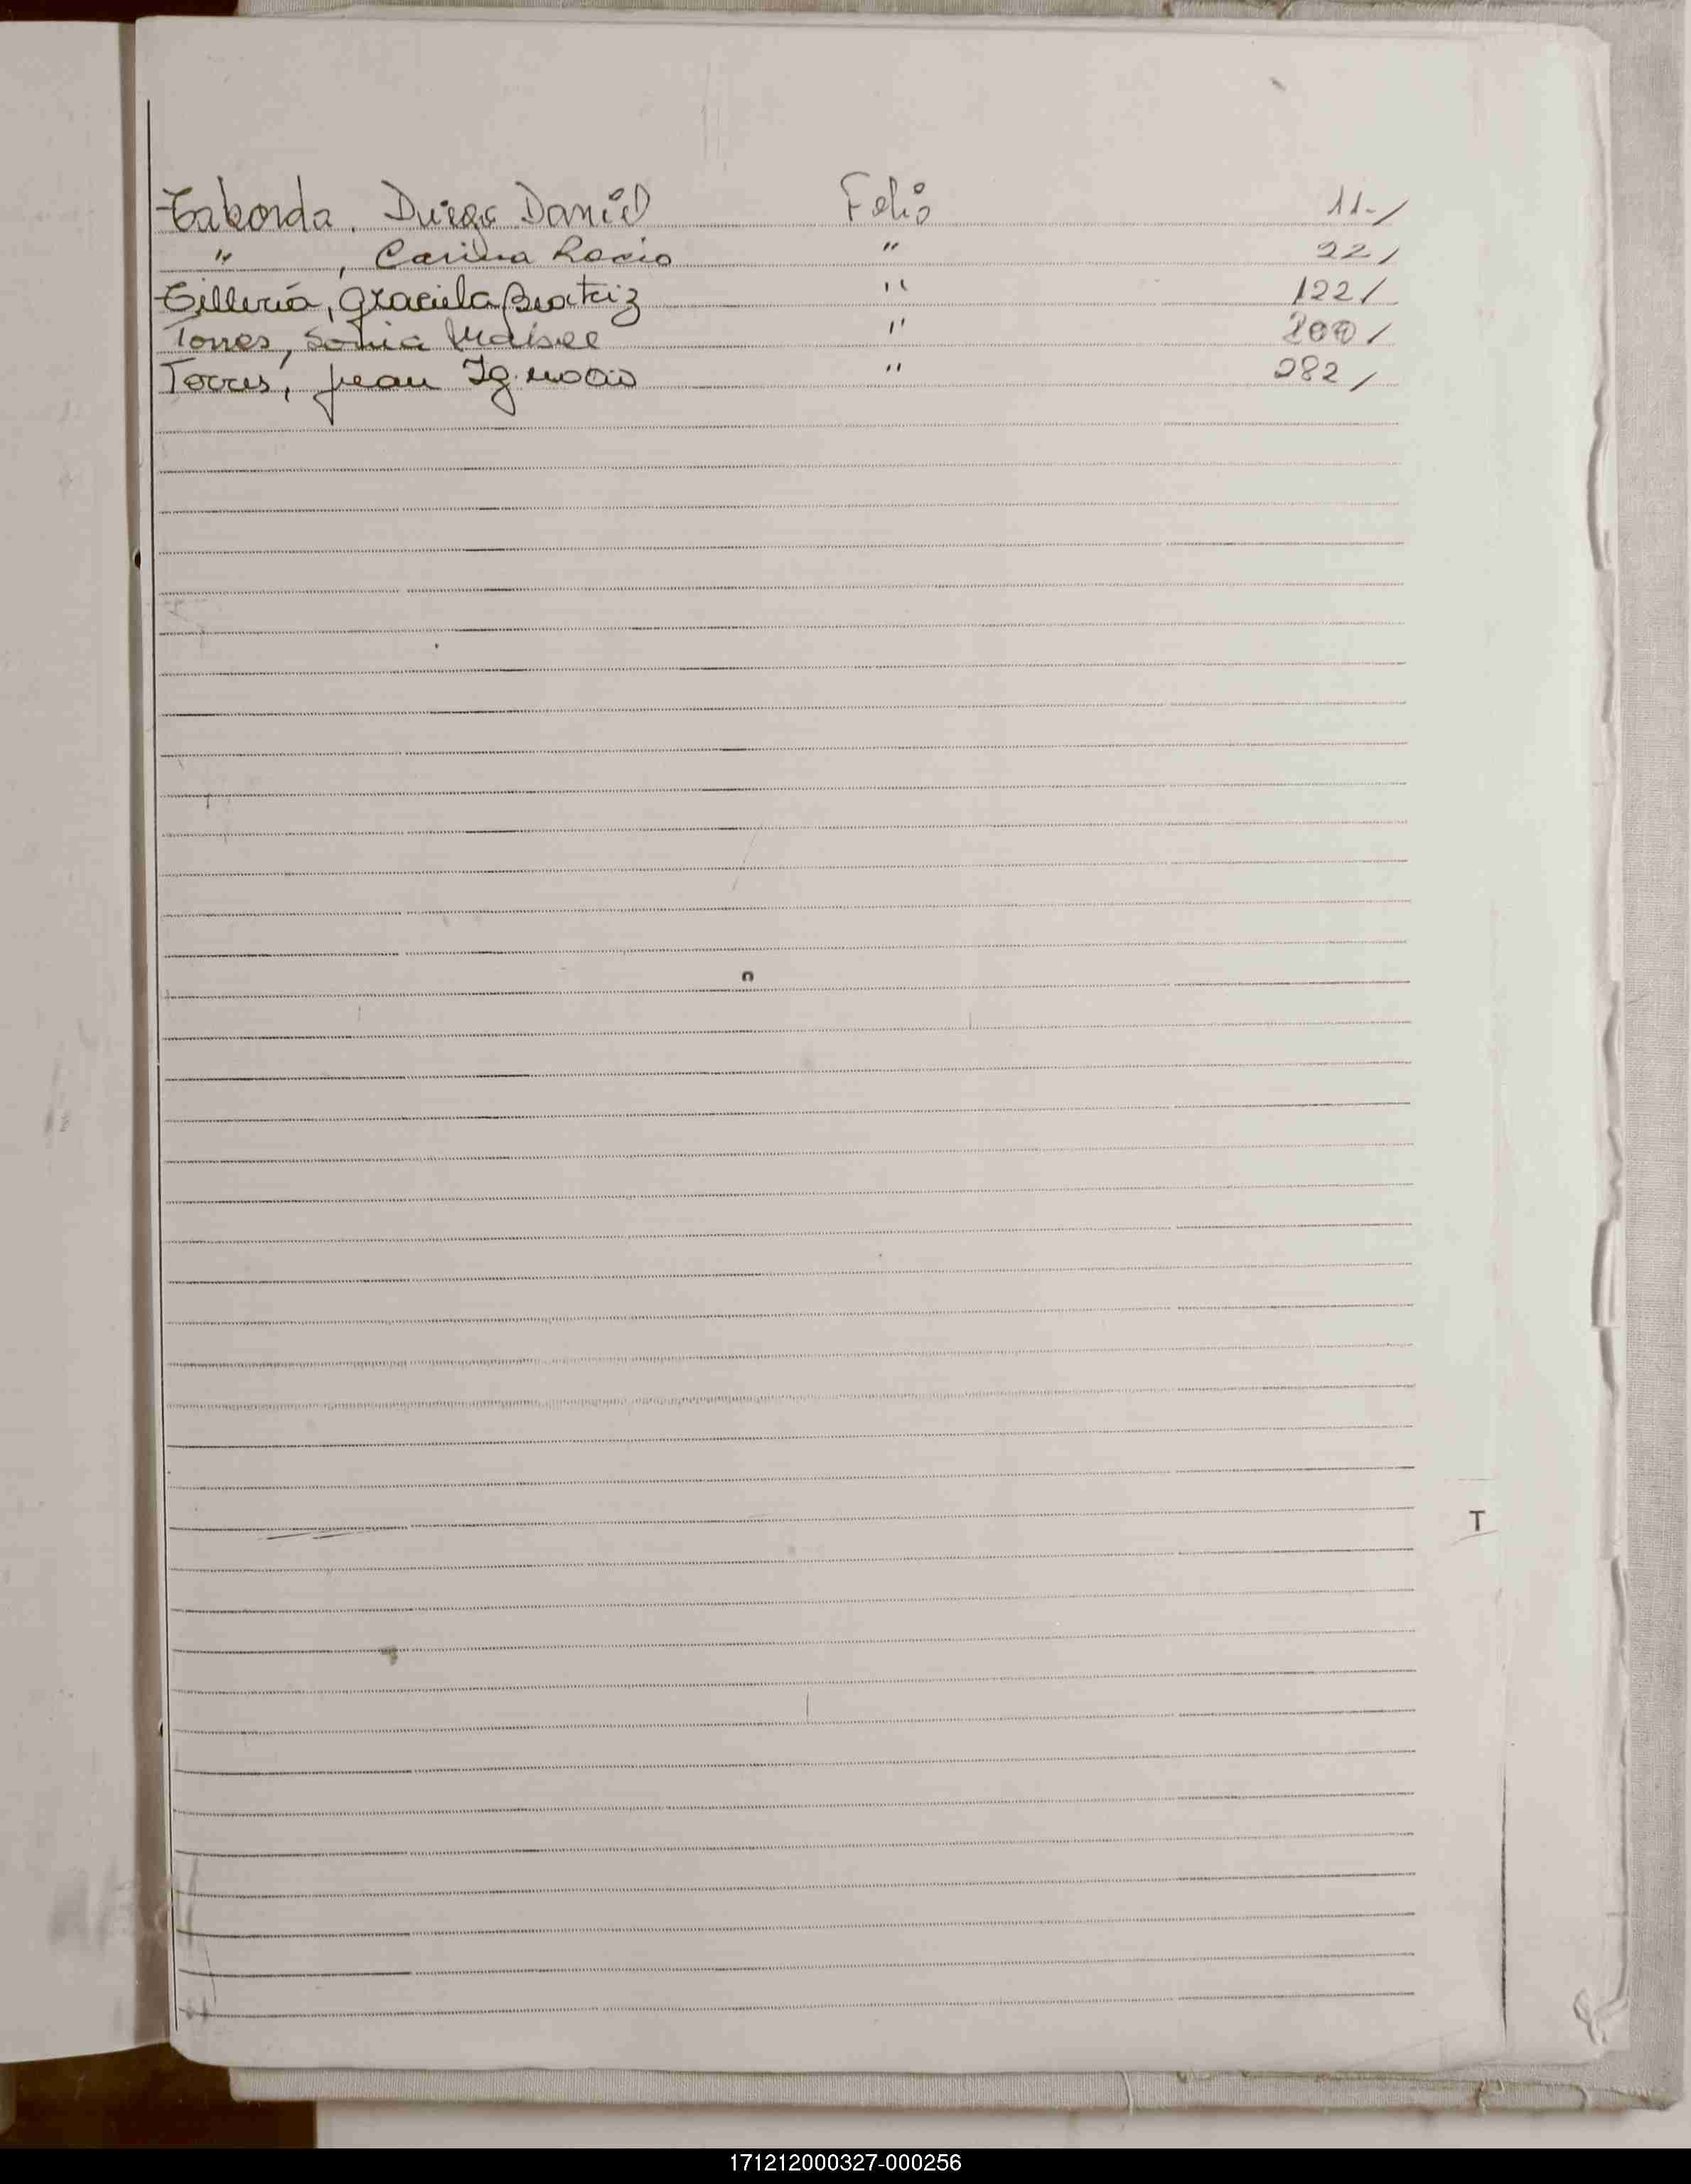 Taborda, Diego Daniel Folio 11-/
" , Carina Rocio " 22/
Tilleria, Graciela Beatriz " 122/
Torres, Sonia " 200/
Torres, Juan Ignacio " 282/
T
171212000327-000256